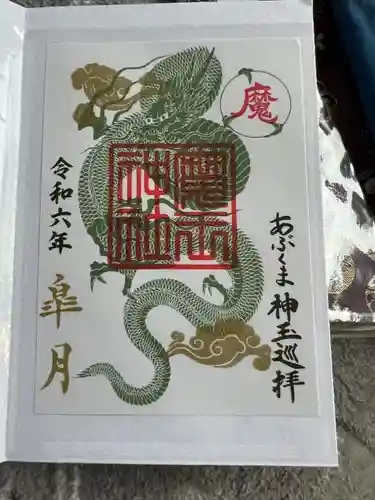 魔
あぶくま神玉巡拝
令和六年
皐月
神社